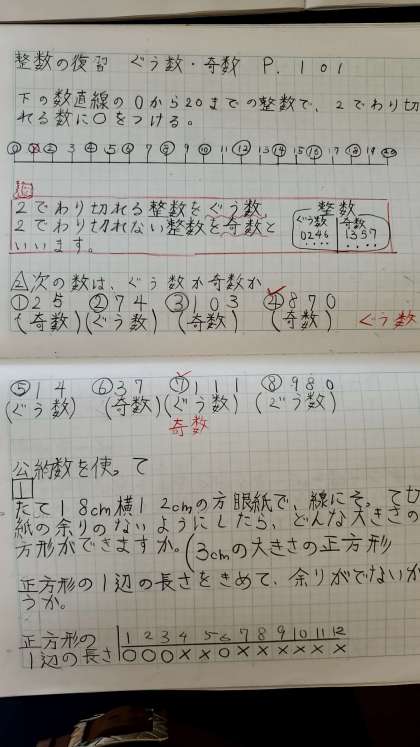 整数の復習 ぐう数・奇数 P.101
下の数直線の0から20までの整数で、2でわり切
れる数に○をつける。
0 1 2 3 4 5 6 7 8 9 10 11 12 13 14 15 16 17 18 19 20
2でわり切れる整数をぐう数、
2でわり切れない整数を奇数と
いいます。
整数
ぐう数 奇数
0246 1357
.... ....
次の数は、ぐう数か奇数か
①25 ②74 ③103 ④870
(奇数)(ぐう数) (奇数) (奇数) ぐう数
⑤14 ⑥37 ⑦111 ⑧980
(ぐう数) (奇数)(ぐう数) (ぐう数)
奇数
公約数を使って
1
たて18cm横12cmの方眼紙で、線にそって切
紙の余りのないようにしたら、どんな大きさの
方形ができますか。(3cmの大きさの正方形
正方形の1辺の長さをきめて、余りがでないか
うか。
正方形の 1 2 3 4 5 6 7 8 9 10 11 12
1辺の長さ ○ ○ ○ × × ○ × × × × × ×